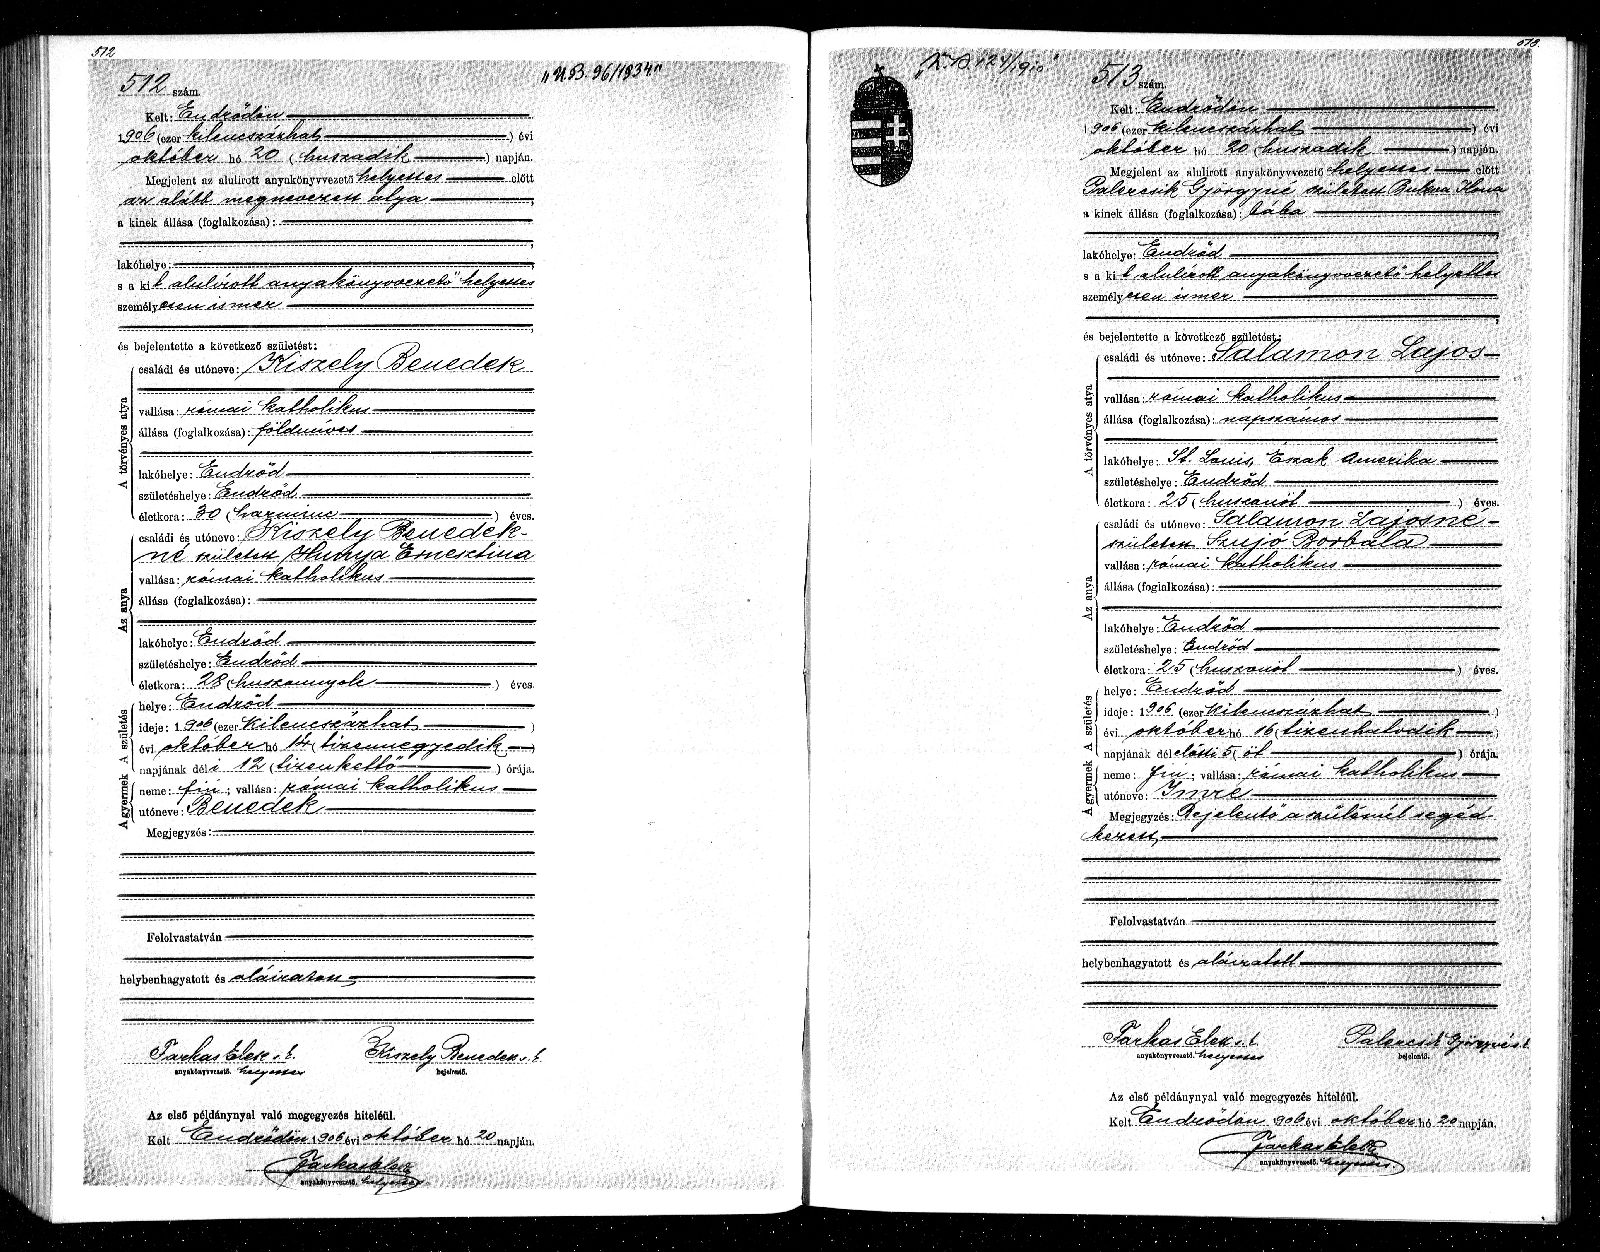 512
512 szám.
„U.B. 96/1934"
Kelt: Endrődön
1906 (ezer kilencszázhat ) évi
október hó 20 (huszadik ) napján.
Megjelent az alulirott anyakönyvvezető helyettes előtt
az alább megnevezett atya
a kinek állása (foglalkozása):
lakóhelye:
s a kit alulirott anyakönyvvezető helyettes
személyesen ismer
és bejelentette a következő születést:
A törvényes atya
családi és utóneve: Kiszely Benedek
vallása: római katholikus
állása (foglalkozása): földmíves
lakóhelye: Endrőd
születéshelye: Endrőd
életkora: 30 (harminc ) éves.
Az anya
családi és utóneve: Kiszely Benedek-
né született Hunya Ernesztina
vallása: római katholikus
állása (foglalkozása):
lakóhelye: Endrőd
születéshelye: Endrőd
életkora: 28 (huszonnyolc ) éves.
A születés
helye: Endrőd
ideje: 1906 (ezer kilencszázhat )
évi október hó 14 (tizennegyedik )
napjának déli 12 (tizenkettő ) órája.
A gyermek
neme: fiu; vallása: római katholikus
utóneve: Benedek
Megjegyzés:
Felolvastatván
helybenhagyatott és aláiratott
Farkas Elek s. k. Kiszely Benedek s. k.
anyakönyvvezető. helyettes bejelentő.
Az első példánynyal való megegyezés hiteléül.
Kelt Endrődön 1906 évi október hó 20 napján.
Farkas Elek
anyakönyvvezető. helyettes
513.
513 szám.
Kelt: Endrődön
1906 (ezer kilencszázhat ) évi
október hó 20 (huszadik ) napján.
Megjelent az alulirott anyakönyvvezető helyettes előtt
Palercsik Györgyné született Bukva Ilona
a kinek állása (foglalkozása): bába
lakóhelye: Endrőd
s a kit alulirott anyakönyvvezető helyettes
személyesen ismer
és bejelentette a következő születést:
A törvényes atya
családi és utóneve: Salamon Lajos
vallása: római katholikus
állása (foglalkozása): napszámos
lakóhelye: St. Louis, Észak Amerika
születéshelye: Endrőd
életkora: 25 (huszonöt ) éves.
Az anya
családi és utóneve: Salamon Lajosné
született Szujó Borbála
vallása: római katholikus
állása (foglalkozása):
lakóhelye: Endrőd
születéshelye: Endrőd
életkora: 25 (huszonöt ) éves.
A születés
helye: Endrőd
ideje: 1906 (ezer kilencszázhat )
évi október hó 16 (tizenhatodik )
napjának délelőtti 5 (öt ) órája.
A gyermek
neme: fiu; vallása: római katholikus
utóneve: Imre
Megjegyzés: Bejelentő a szülésnél segéd-
kezett
Felolvastatván
helybenhagyatott és aláiratott
Farkas Elek s. k. Palercsik Györgyné s. k.
anyakönyvvezető. helyettes bejelentő.
Az első példánynyal való megegyezés hiteléül.
Kelt Endrődön 1906 évi október hó 20 napján.
Farkas Elek
anyakönyvvezető. helyettes.